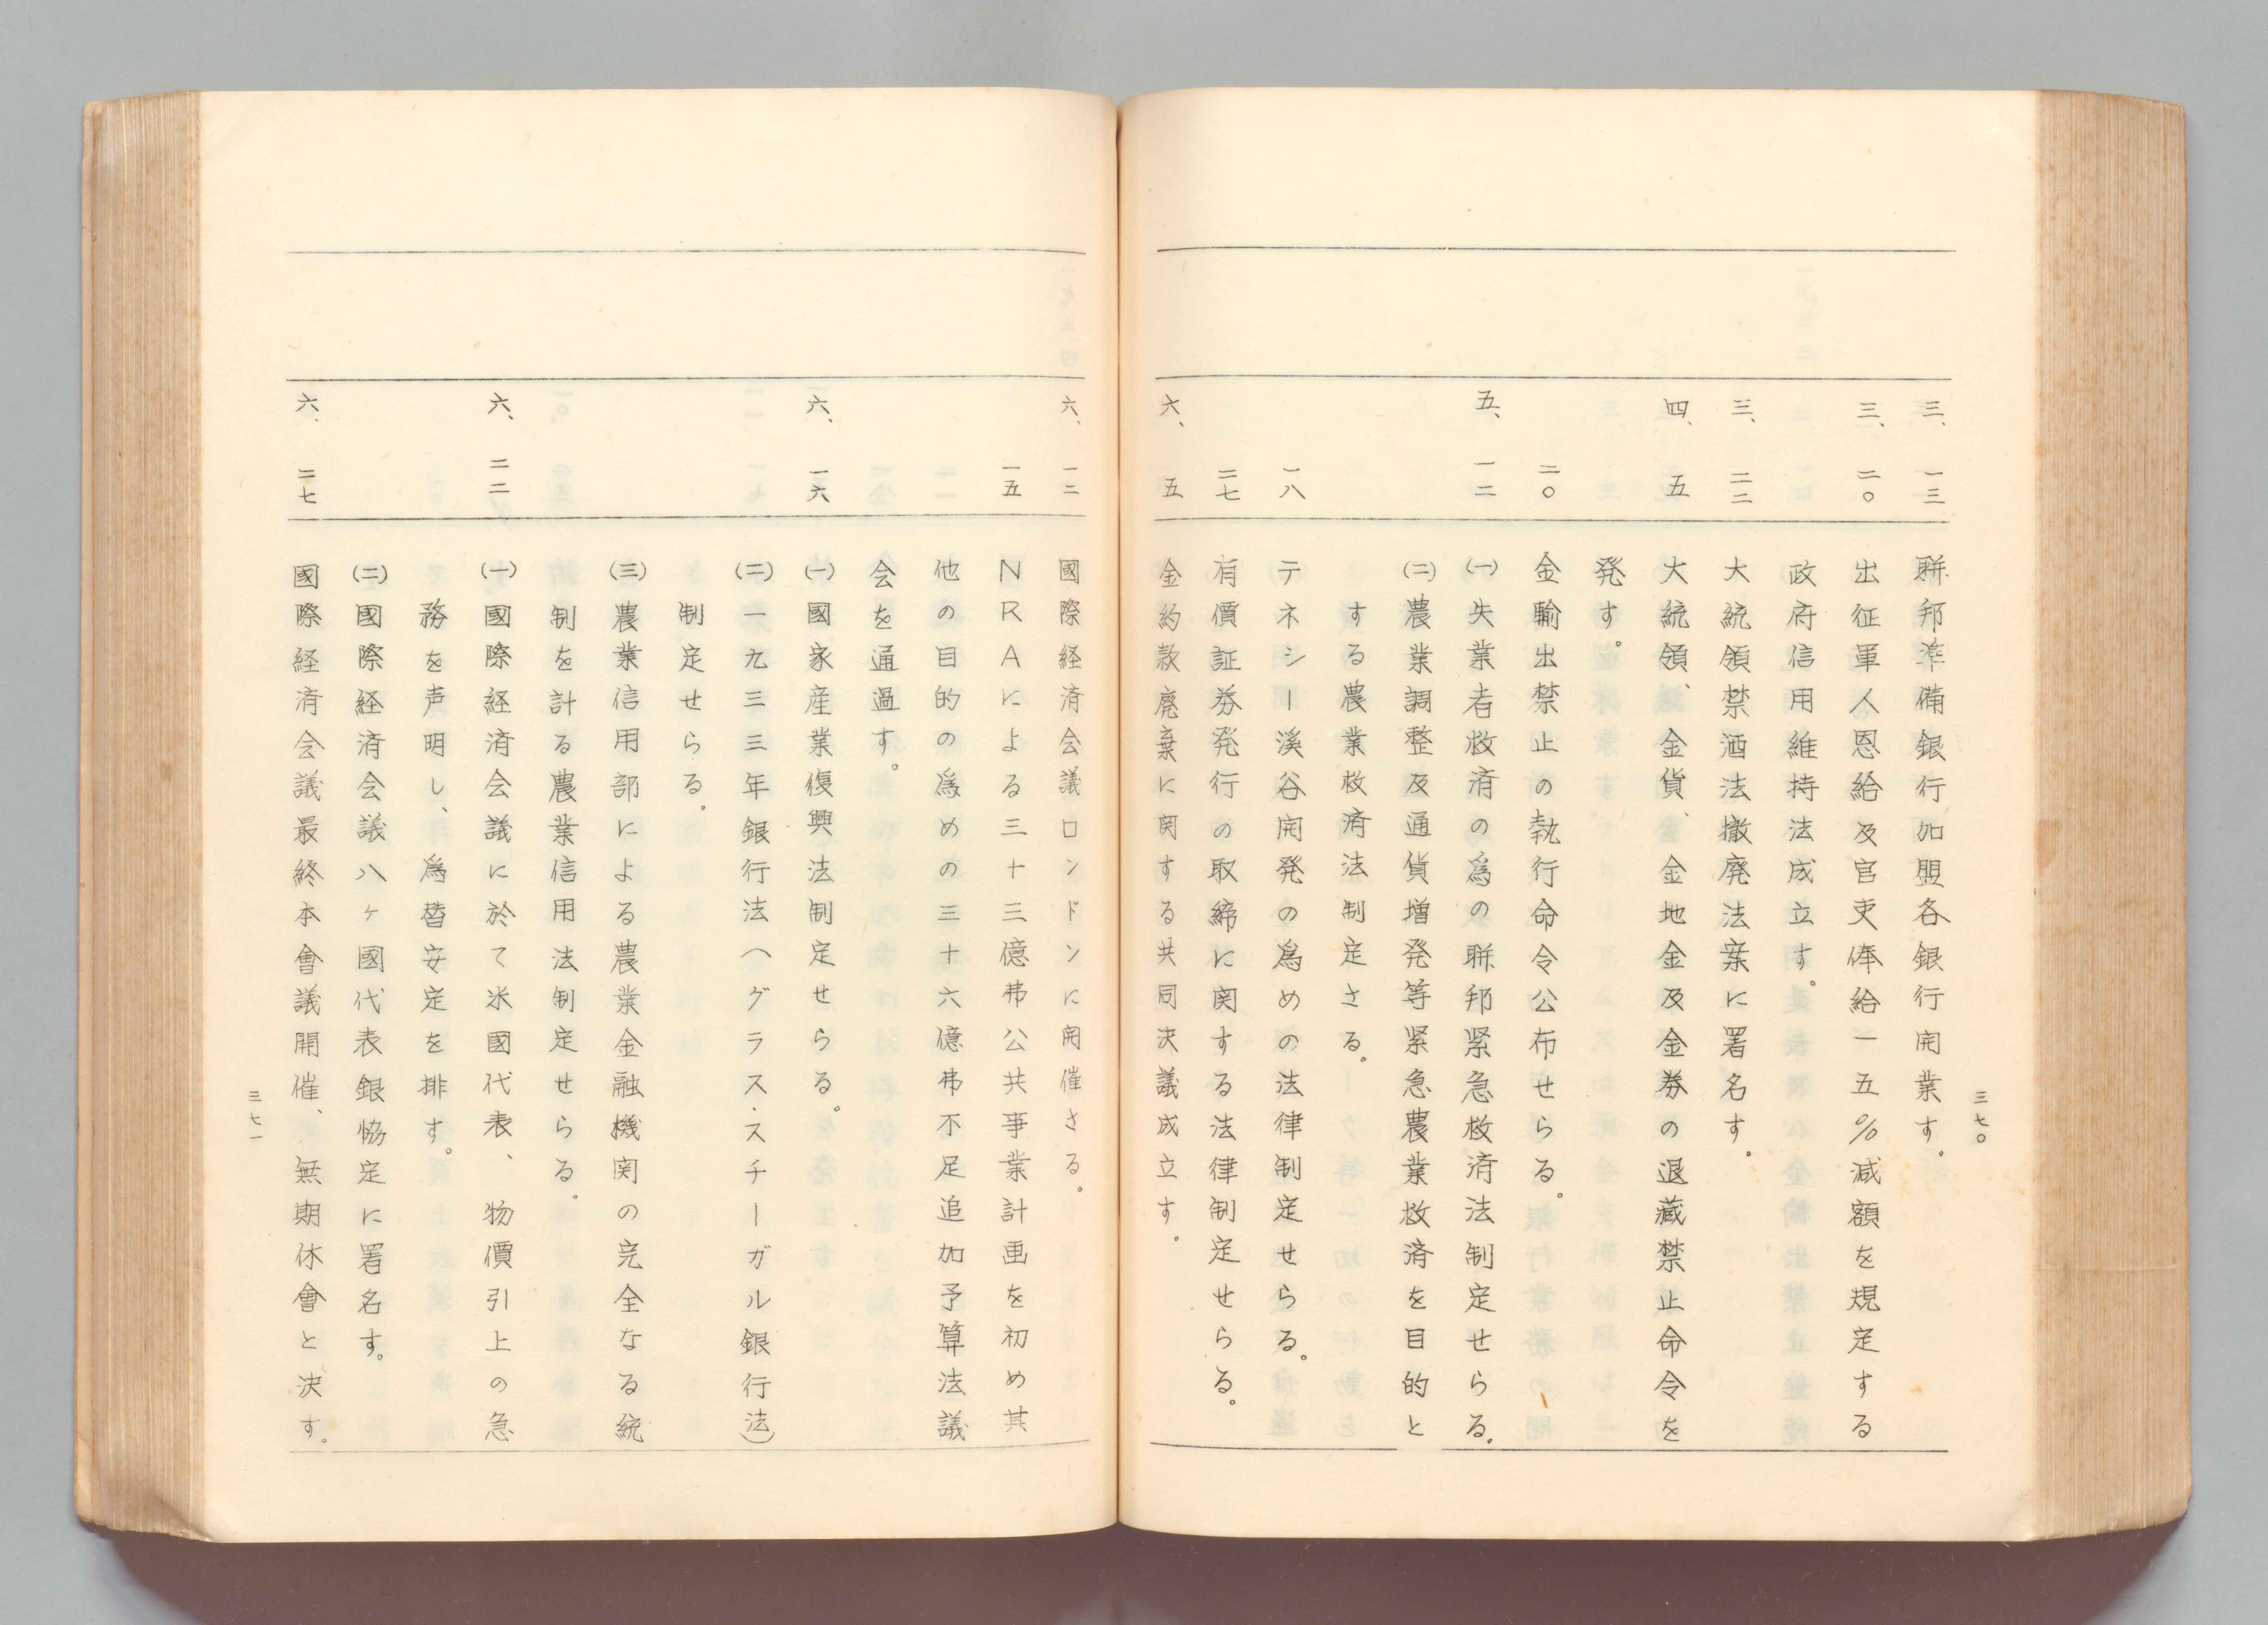 三七〇
三、一三 聨邦準備銀行加盟各銀行開業す。
三、二〇 出征軍人恩給及官吏俸給一五％減額を規定する
政府信用維持法成立す。
三、二二 大統領禁酒法撤廃法案に署名す。
四、五 大統領、金貨、金地金及金券の退藏禁止命令を
発す。
二〇 金輸出禁止の執行命令公布せらる。
五、一二 (一)失業者救済の爲の聨邦緊急救済法制定せらる。
(二)農業調整及通貨増発等緊急農業救済を目的と
する農業救済法制定さる。
一八 テネシー溪谷開発の爲めの法律制定せらる。
二七 有價証券発行の取締に関する法律制定せらる。
六、五 金約款廃棄に関する共同決議成立す。
六、一二 國際経済会議ロンドンに開催さる。
一五 NRAによる三十三億弗公共事業計画を初め其
他の目的の爲めの三十六億弗不足追加予算法議
会を通過す。
六、一六 (一)國家産業復興法制定せらる。
(二)一九三三年銀行法(グラス・スチーガル銀行法)
制定せらる。
(三)農業信用部による農業金融機関の完全なる統
制を計る農業信用法制定せらる。
六、二二 (一)國際経済会議に於て米國代表、物價引上の急
務を声明し、爲替安定を排す。
(二)國際経済会議八ヶ國代表銀協定に署名す。
六、二七 國際経済会議最終本會議開催、無期休會と決す。
三七一